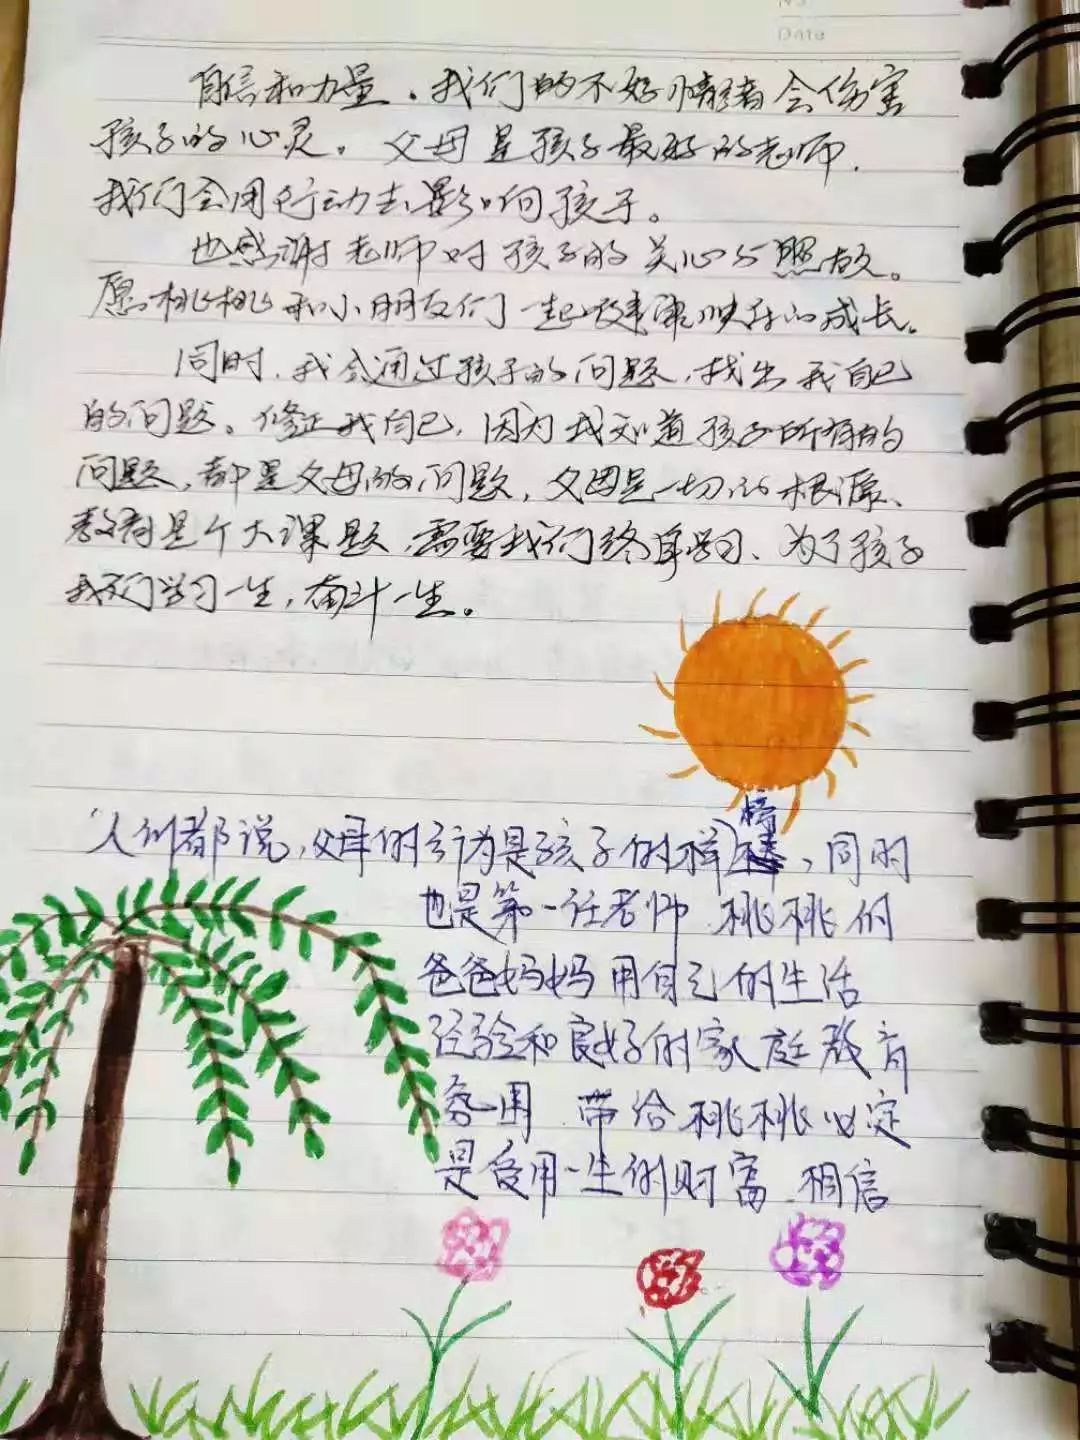 No
Date
自信和力量。我们的不好情绪会伤害
孩子的心灵。父母是孩子最好的老师.
我们会用行动去影响孩子。
也感谢老师对孩子的关心与照顾。
愿桃桃和小朋友们一起健康快乐的成长。
同时,我会通过孩子的问题,找出我自己
的问题。修正我自己,因为我知道孩子所有的
问题,都是父母的问题,父母是一切的根源、
教育是个大课题,需要我们终身学习、为了孩子
我们学习一生,奋斗一生。
人们都说,父母的行为是孩子的样榜,同时
也是第一任老师.桃桃的
爸爸妈妈用自己的生活
经验和良好的家庭教育
氛围.带给桃桃必定
是受用一生的财富.相信